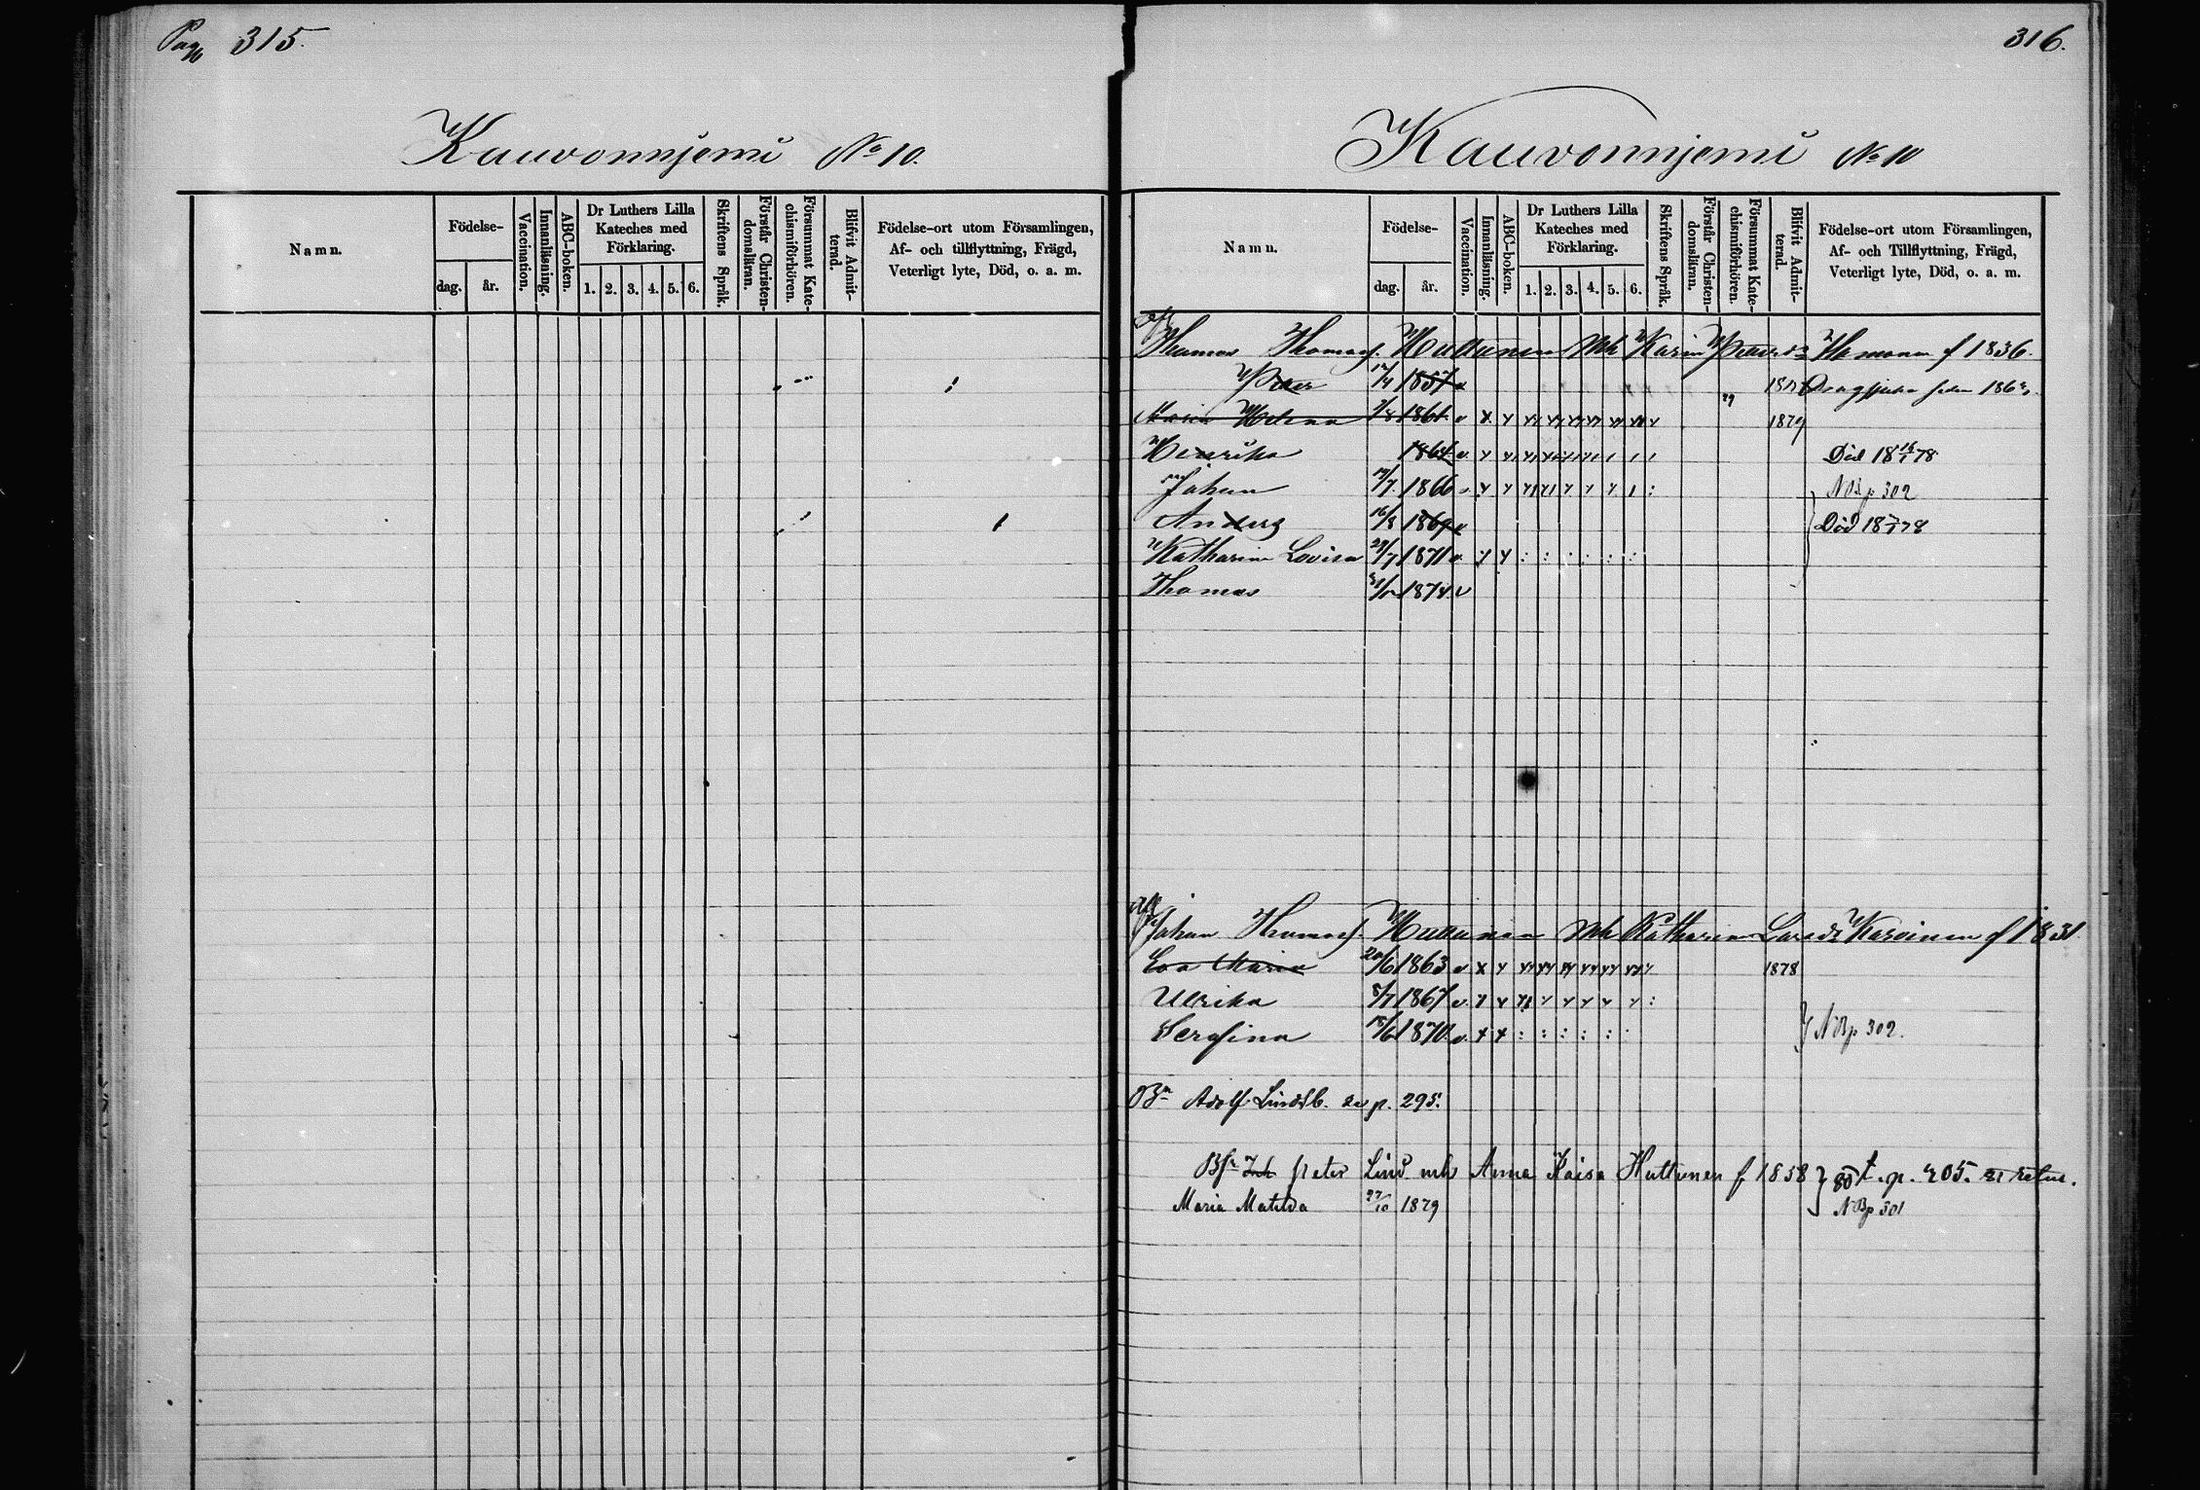 Pag 315.
Kauvonnjemi No 10.
Namn.
Födelse-
dag.
år.
Vaccination.
Innanläsning.
ABC-boken.
Dr Luthers Lilla
Kateches med
Förklaring.
1. 2. 3. 4. 5. 6.
Skriftens Språk.
Förstår Christen-
domsläran.
Försummat Kate-
chismiförhören.
Blifvit Admit-
terad.
Födelse-ort utom Församlingen,
Af- och tillflyttning, Frägd,
Veterligt lyte, Död, o. a. m.
316.
Kauvonnjemi No 10
Namn.
Födelse-
dag.
år.
Vaccination.
Innanläsning.
ABC-boken.
Dr Luthers Lilla
Kateches med
Förklaring.
1. 2. 3. 4. 5. 6.
Skriftens Språk.
Förstår Christen-
domsläran.
Försummat Kate-
chismiförhören.
Blifvit Admit-
terad.
Födelse-ort utom Församlingen,
Af- och Tillflyttning, Frägd,
Veterligt lyte, Död, o. a. m.
Thomas Thomass. Huttunen Mh Karin f 1836.
Peter 1857
Maria Helena 1861 v 1879
Henrika 1864 v Död 78
Johan 1866 NB p 302
Anders 16/8 1869 Död 78
Katharina Lovisa 29/7 1871 v
Thomas 1874 v
Johan Thomass. Huttunen Mh Katharina Larsdr f 1831
Eva Maria 1863 v 1878
Ulrika 8/7 1867 v
Serafina 15/6 1870 v NB p 302.
Adolf Lindst. p. 295.
Peter Lind mh Anna Kaisa Huttunen f 1858 80 t. p. 205. retur.
Maria Matilda 27/10 1879 NB p 301